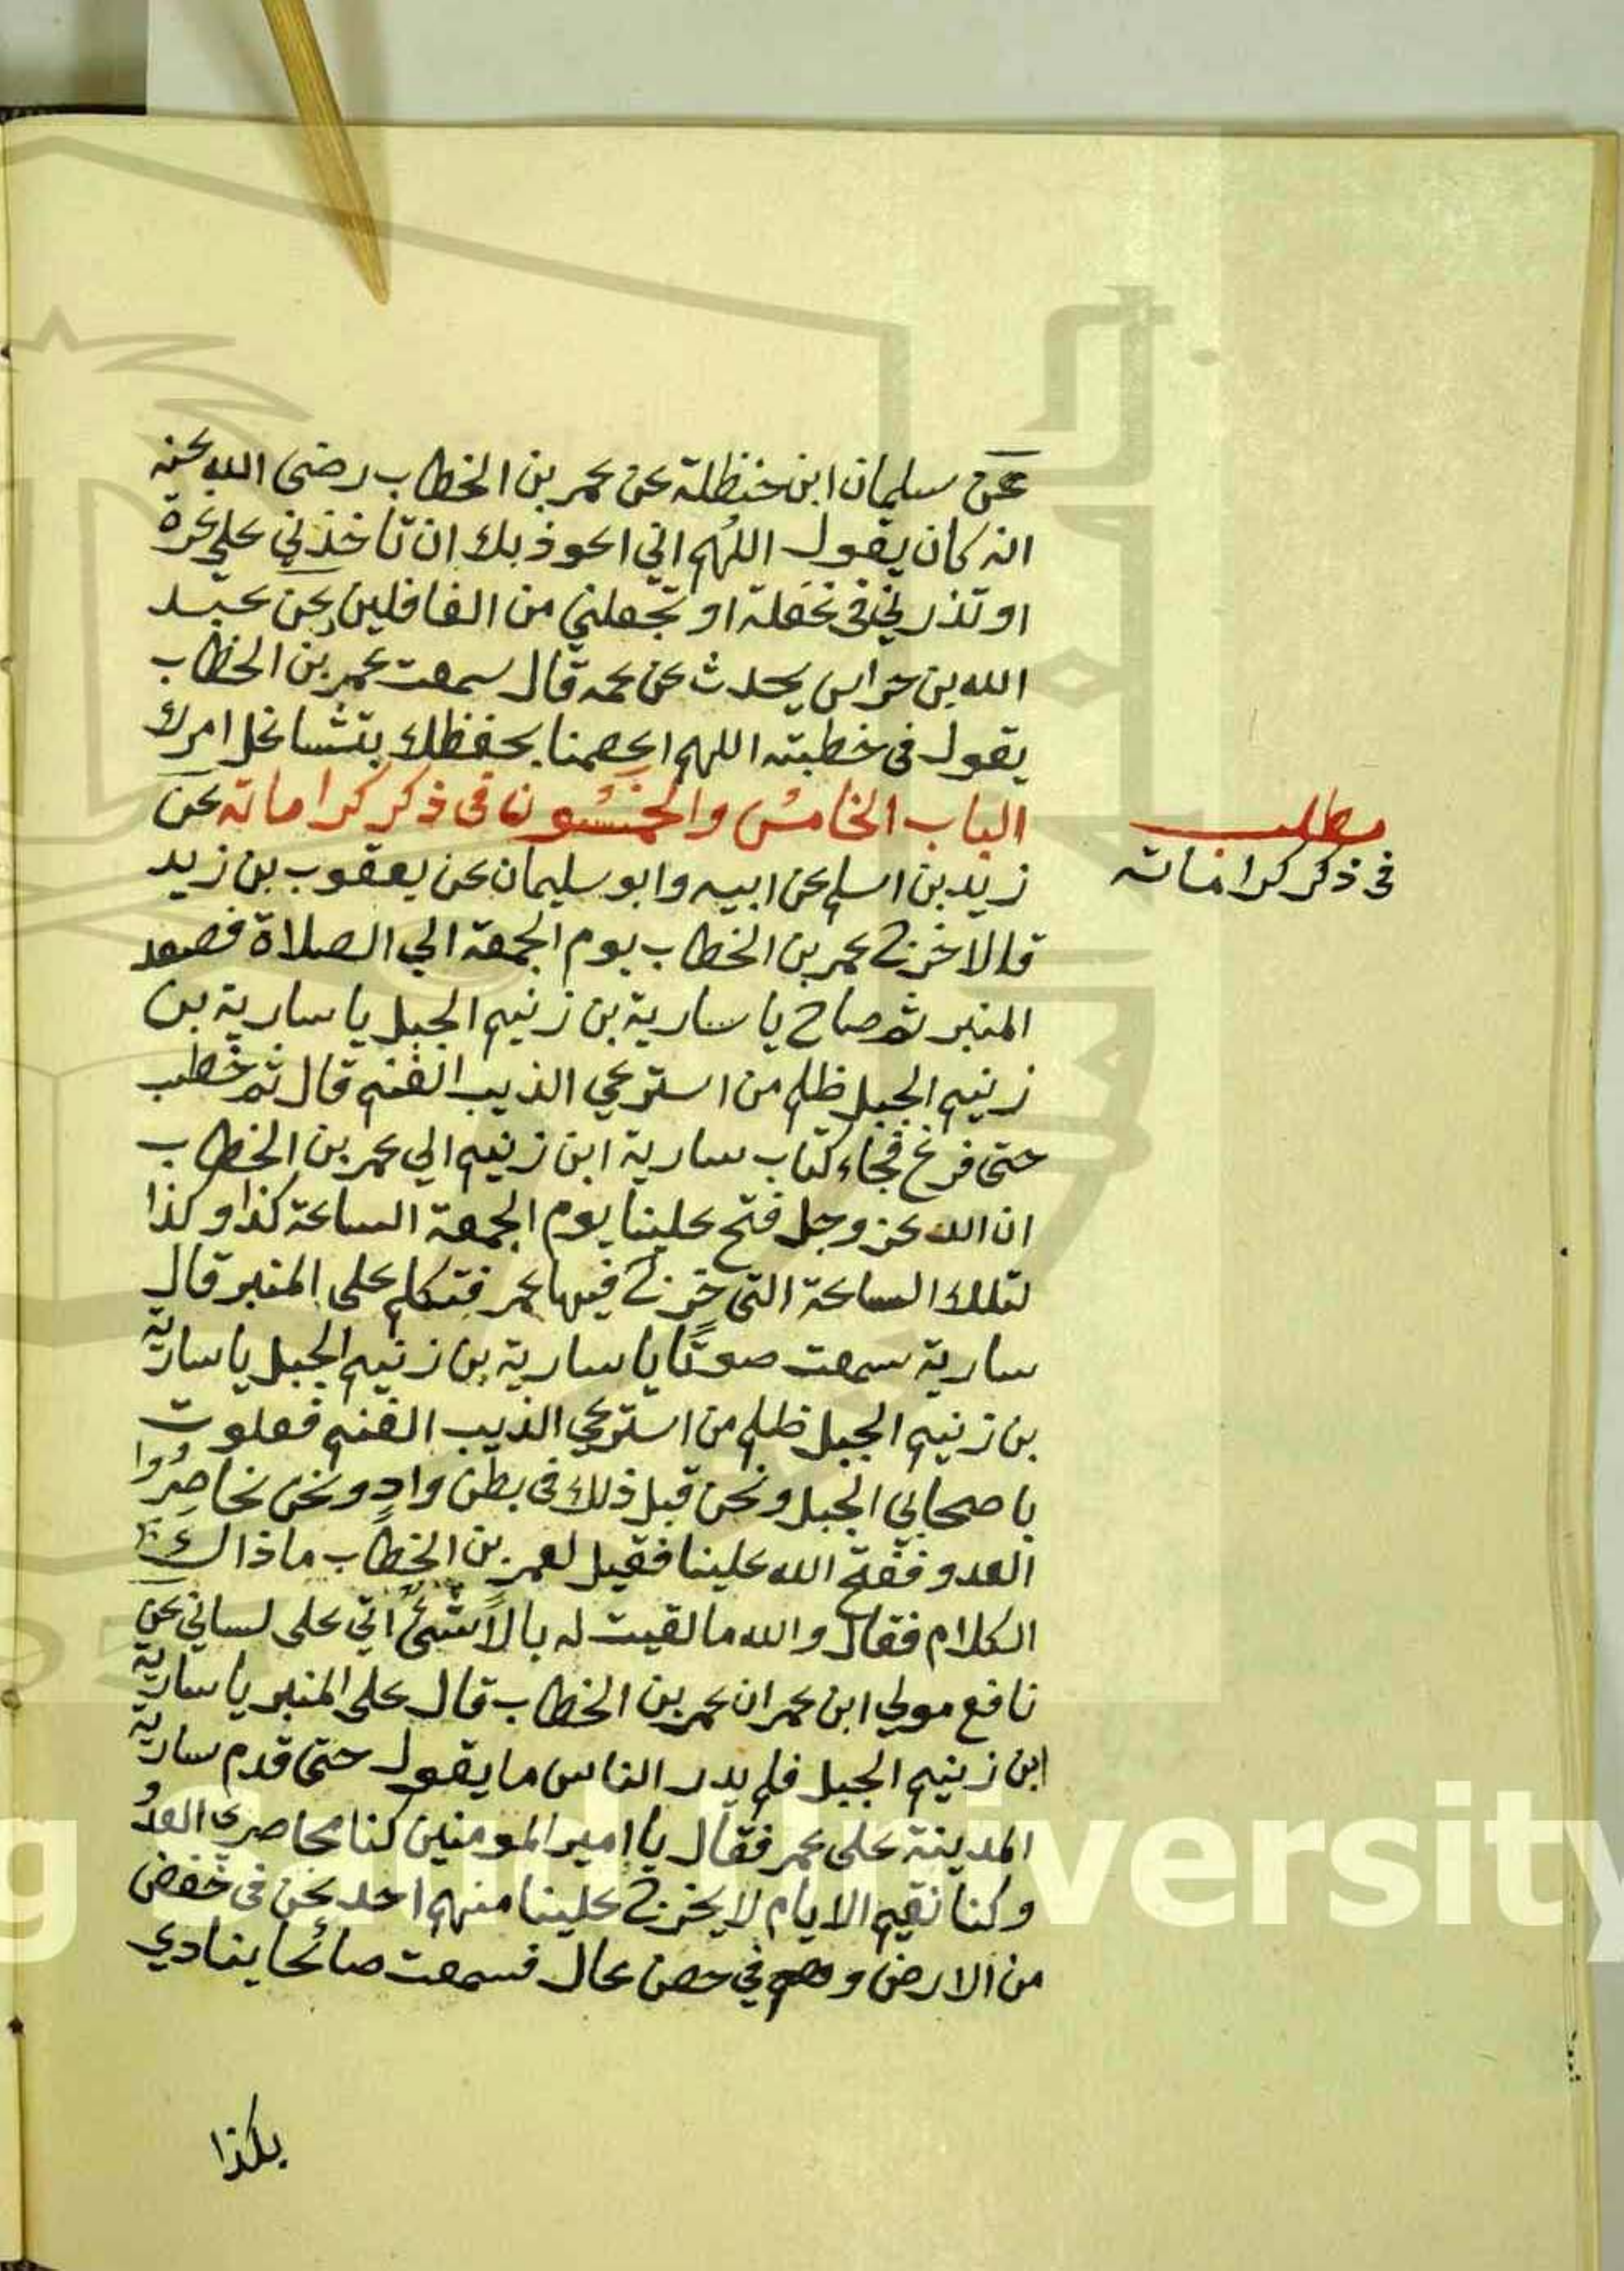 عن سليمان ابن حنظلة عن عمر بن الخطاب رضى الله عنه
انه كان يقول اللهم اني اعوذ بك ان تاخذني على غرة
او تذرني في غفلة او تجعلني من الغافلين عن عبد
الله بن حراس يحدث عن عمه قال سمعت عمر بن الخطاب
يقول في خطبته اللهم اعصمنا بحفظك امرك
الباب الخامس والخمسون في ذكر كراماته عن
مطلب
في ذكر كراماته
زيد بن اسلم عن ابيه وابو سليمان عن يعقوب بن زيد
قالا خرج عمر بن الخطاب يوم الجمعة الي الصلاة فصعد
المنبر ثم صاح يا سارية بن زنيم الجبل يا سارية بن
زنيم الجبل ظلم من استرعي الذيب الغنم قال ثم خطب
حتى فرغ فجاء كتاب سارية ابن زنيم الي عمر بن الخطاب
ان الله عز وجل فتح علينا يوم الجمعة الساعة كذا وكذا
لتلك الساعة التى خرج فيها عمر فتكلم على المنبر قال
سارية سمعت صوتًا يا سارية بن زنيم الجبل يا سارية
بن زنيم الجبل ظلم من استرعي الذيب الغنم فعلوت
باصحابي الجبل ونحن قبل ذلك في بطن وادٍ ونحن محاصِرُوا
العدو ففتح الله علينا فقيل لعمر بن الخطاب ما ذالك
الكلام فقال والله ما لقيت له بالًا شئٌ اتي على لساني عن
نافع مولي ابن عمر ان عمر بن الخطاب قال على المنبر يا سارية
ابن زنيم الجبل فلم يدر الناس ما يقول حتى قدم سارية
المدينة على عمر فقال يا امير المومنين كنا محاصري العدُو
وكنا نقيم الايام لا يخرج علينا منهم احد نحن في خفض
من الارض وهم في حصن عال فسمعت صائحا ينادي
بكذا